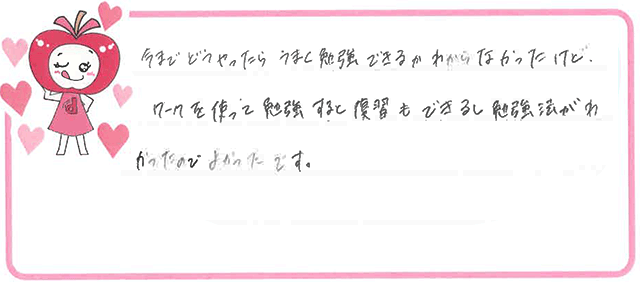 今まで どうやったら うまく勉強 できるか わからなかったけど、
ワークを使って勉強すると復習もできるし勉強法がわ
かったので よかったです。